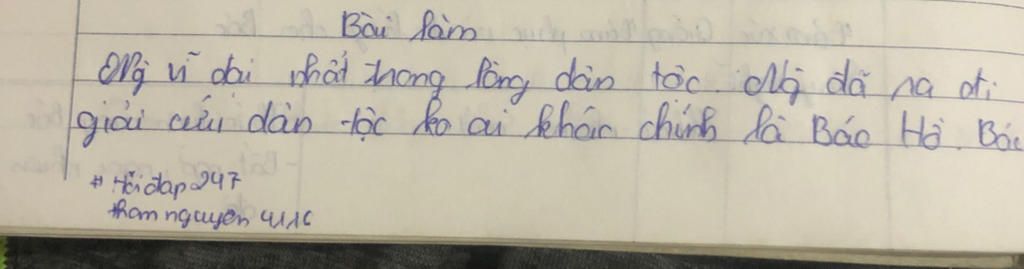 Bài làm
Ng vĩ đại nhất trong lòng dân tộc. Ng đã ra đi
giải cứu dân tộc ko ai khác chính là Bác Hồ. Bác
# Hỏi đap 247
tham nguyen 4116